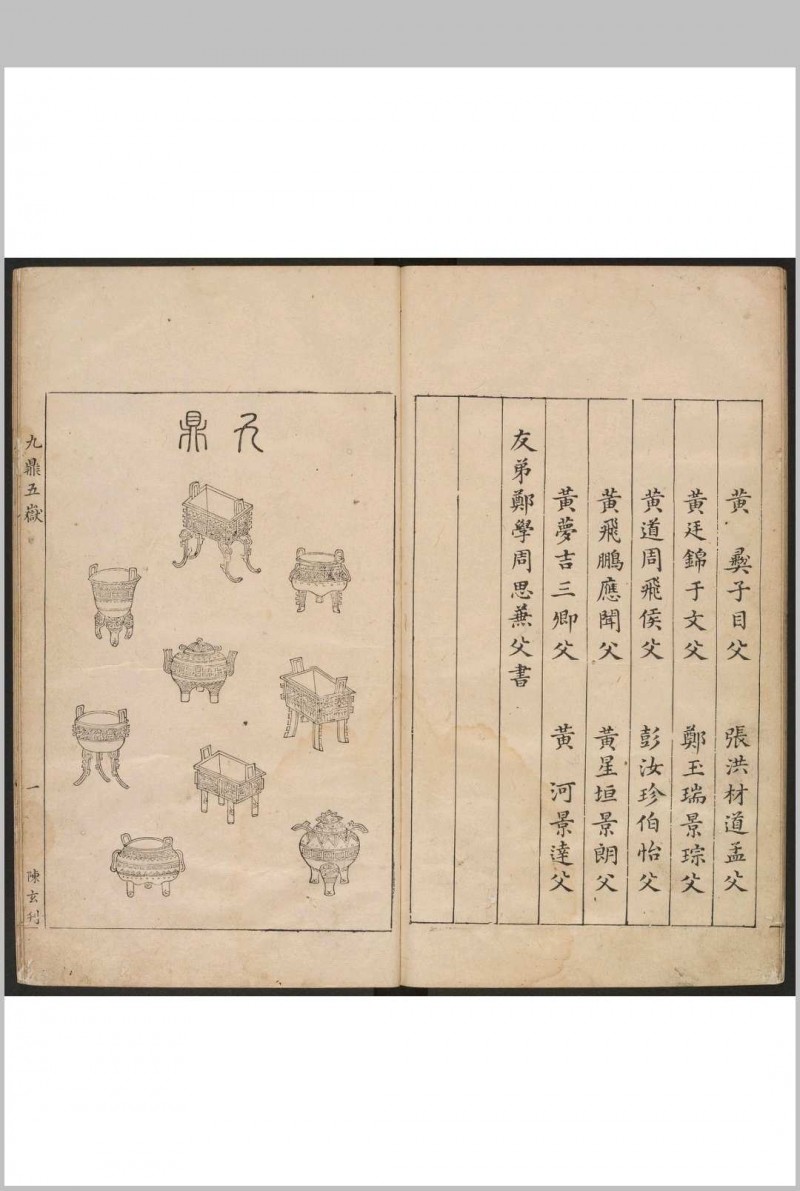 黃　彜子目父　張洪材道孟父
黃廷錦于文父　鄭玉瑞景琮父
黃道周飛侯父　彭汝珍伯怡父
黃飛鵬應聞父　黃星垣景朗父
黃夢吉三卿父　黃　河景達父
友弟鄭學周思蒹父書
九鼎
九鼎五嶽
一
陳玄刋